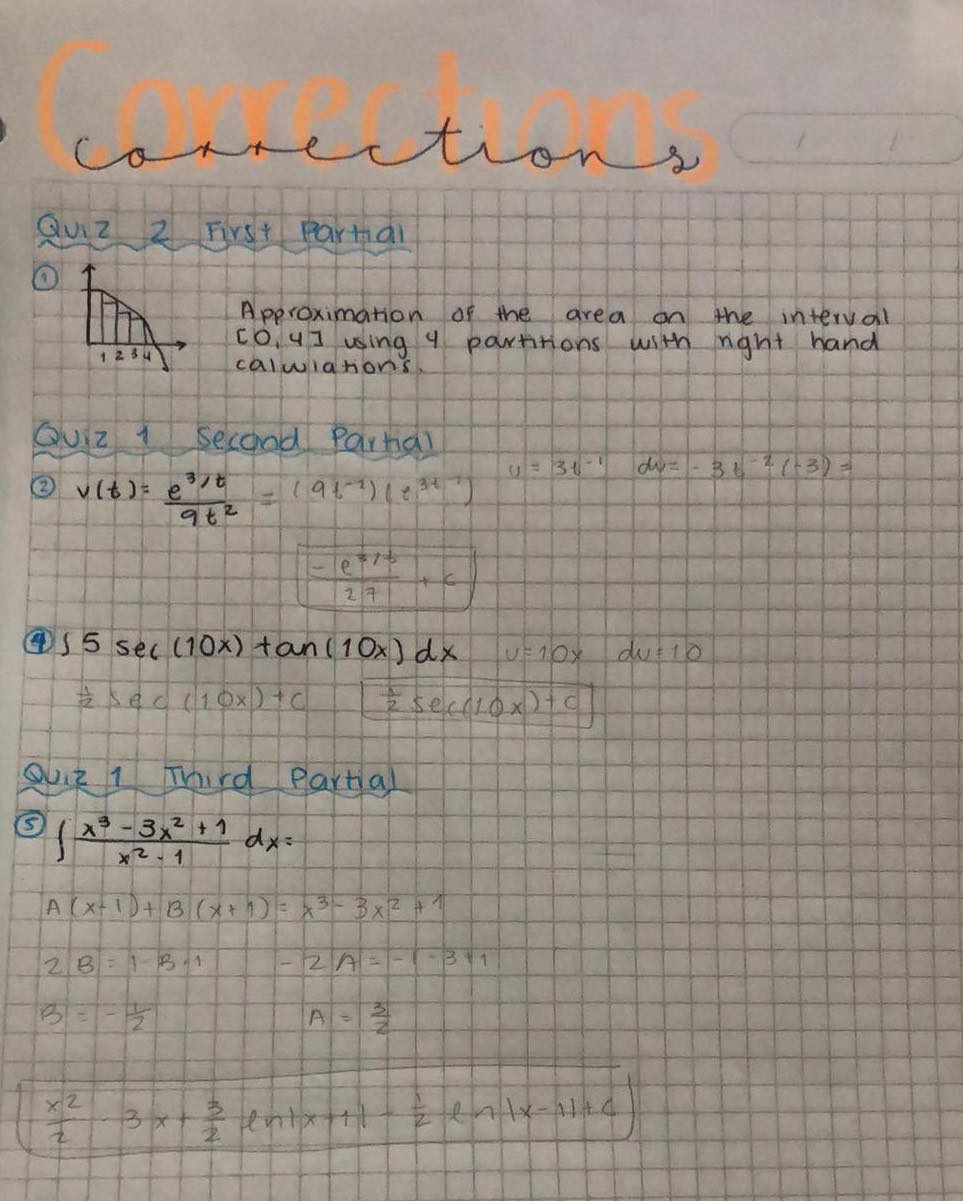 Corrections
corrections
/ /
Quiz 2 First Partial
① Approximation of the area on the interval
[0,4] using 4 partitions with right hand
calculations.
1 2 3 4
Quiz 1 Second Partial
② v(t) = e^3/t / 9t² = (9t⁻²)(e^3t⁻¹) u = 3t⁻¹ du = -3t⁻²(-3) =
-e^3/t / 27 + c
④ ∫ 5 sec(10x) tan(10x) dx u=10x du=10
½ sec (10x)+c ½ sec(10x)+c
Quiz 1 Third Partial
⑤ ∫ x³ - 3x² + 1 / x² - 1 dx =
A(x-1) + B(x+1) = x³ - 3x² + 1
2B = 1-3+1 -2A = -1-3+1
B = -½ A = 3/2
x²/2 - 3x + 3/2 ln|x+1| - ½ ln|x-1| + c